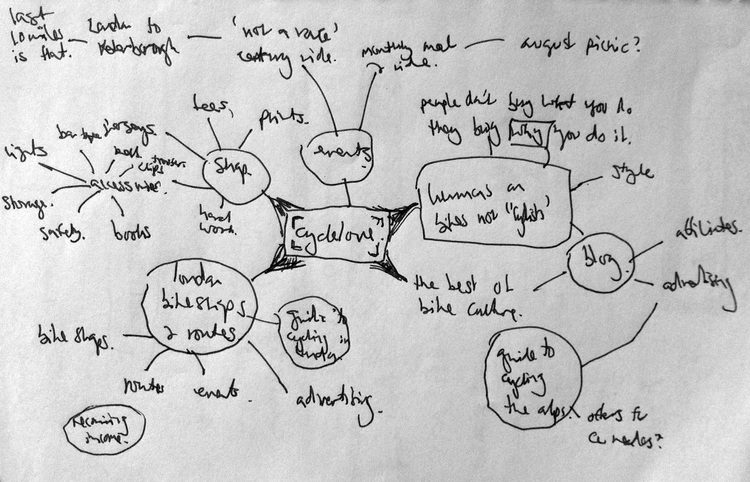 last
10 miles
is flat.
London to
Peterborough
'not a race'
century ride.
monthly
ride.
august picnic?
people don't buy what you do,
they buy why you do it.
tees,
prints.
jerseys.
bar tape
lights
clips
accessories
storage.
safety.
books
shop
hard
events
[cyclelove]
humans on
bikes not "cyclists"
style
blog
affiliates.
advertising
the best of
bike culture.
london
bike shops
& routes
guide to
cycling in
london.
bike shops.
routes
events.
advertising.
guide to
cycling
the alps.
others for
recurring
income.